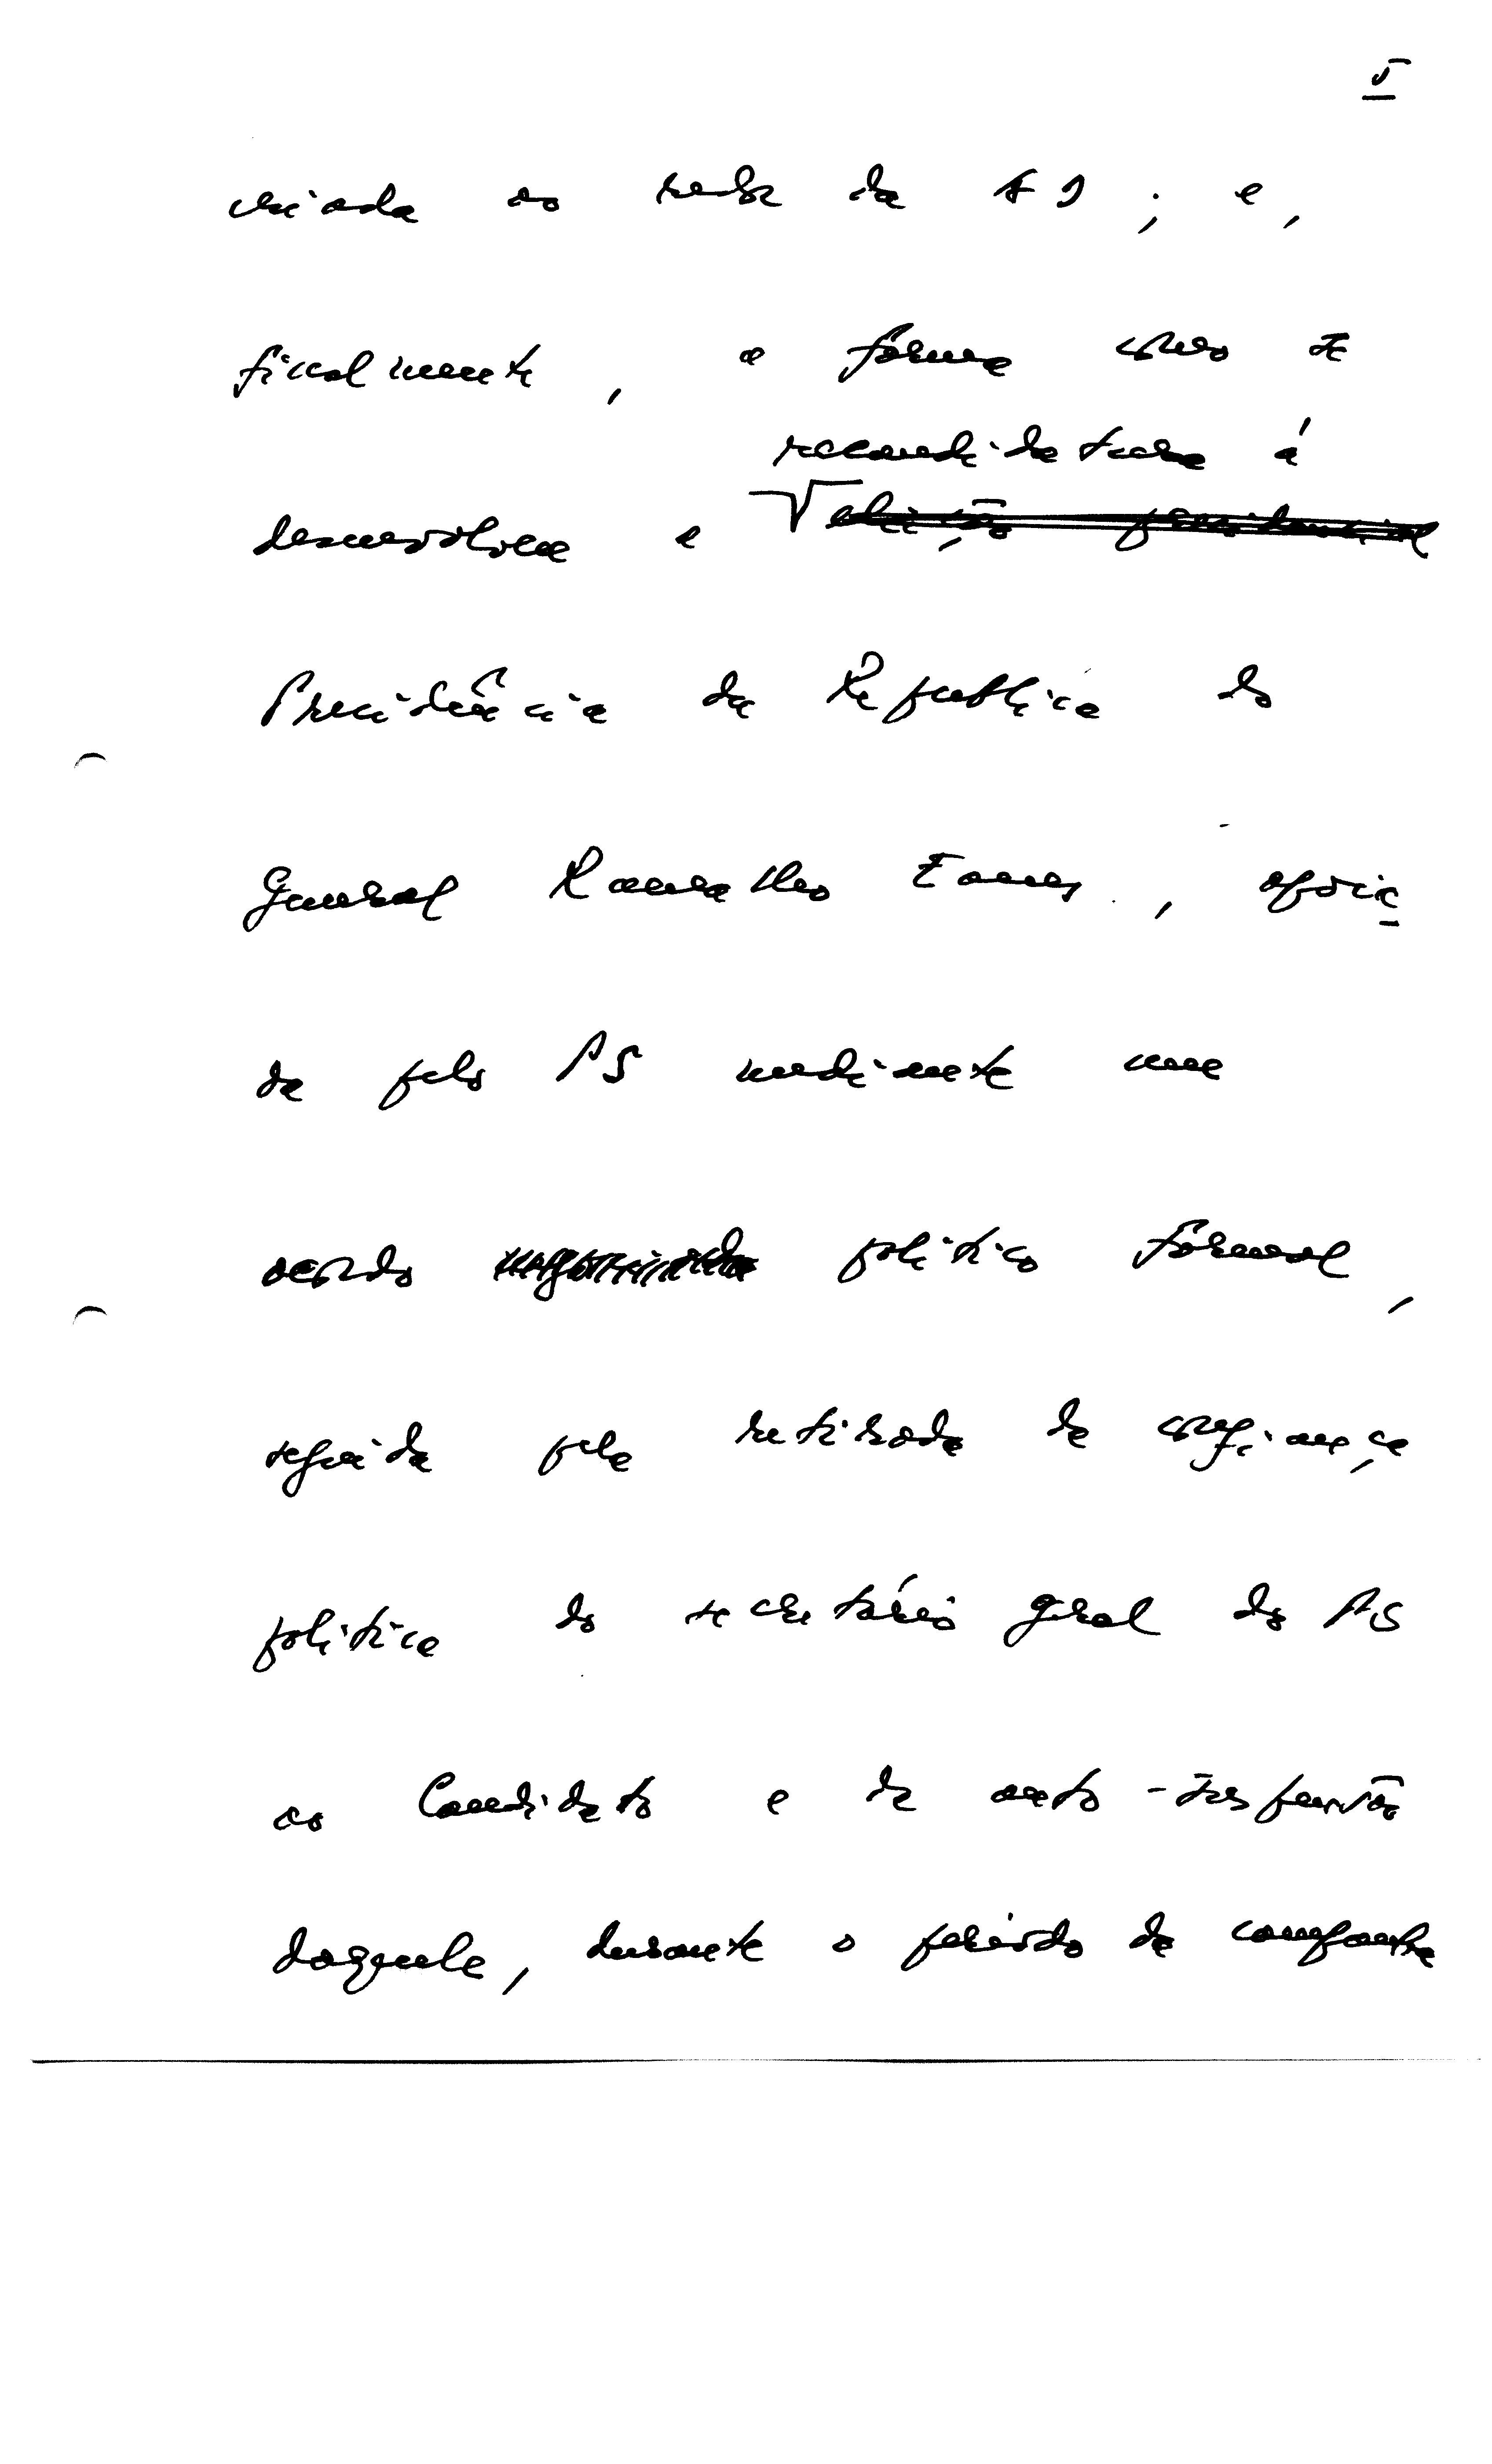 5
criada ao redor da AD; e,
finalmente, a forma como se
recandidatura á
desenvolveu a eleição presidencial
Presidência da República do
General Ramalho Eanes, apoia
da pelo PS mediante um
acordo político formal,
seguida pela retirada da confiança
política do secretário geral do PS
ao Candidato e da auto-suspensão
daquele, durante o período da campanha